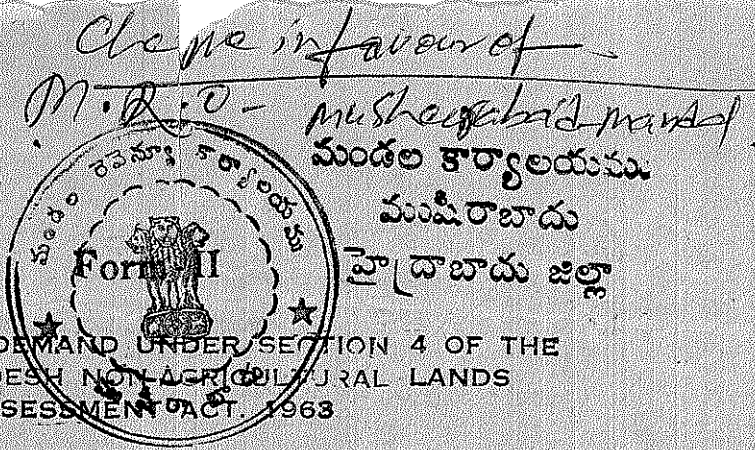 Cheque in favour of
M.R.O - musheerabad mandal
మండల రెవెన్యూ కార్యాలయము
మండల కార్యాలయము
ముషీరాబాదు
హైద్రాబాదు జిల్లా
Form II
DEMAND UNDER SECTION 4 OF THE
DESH NON-AGRICULTURAL LANDS
SESSMENT ACT. 1963